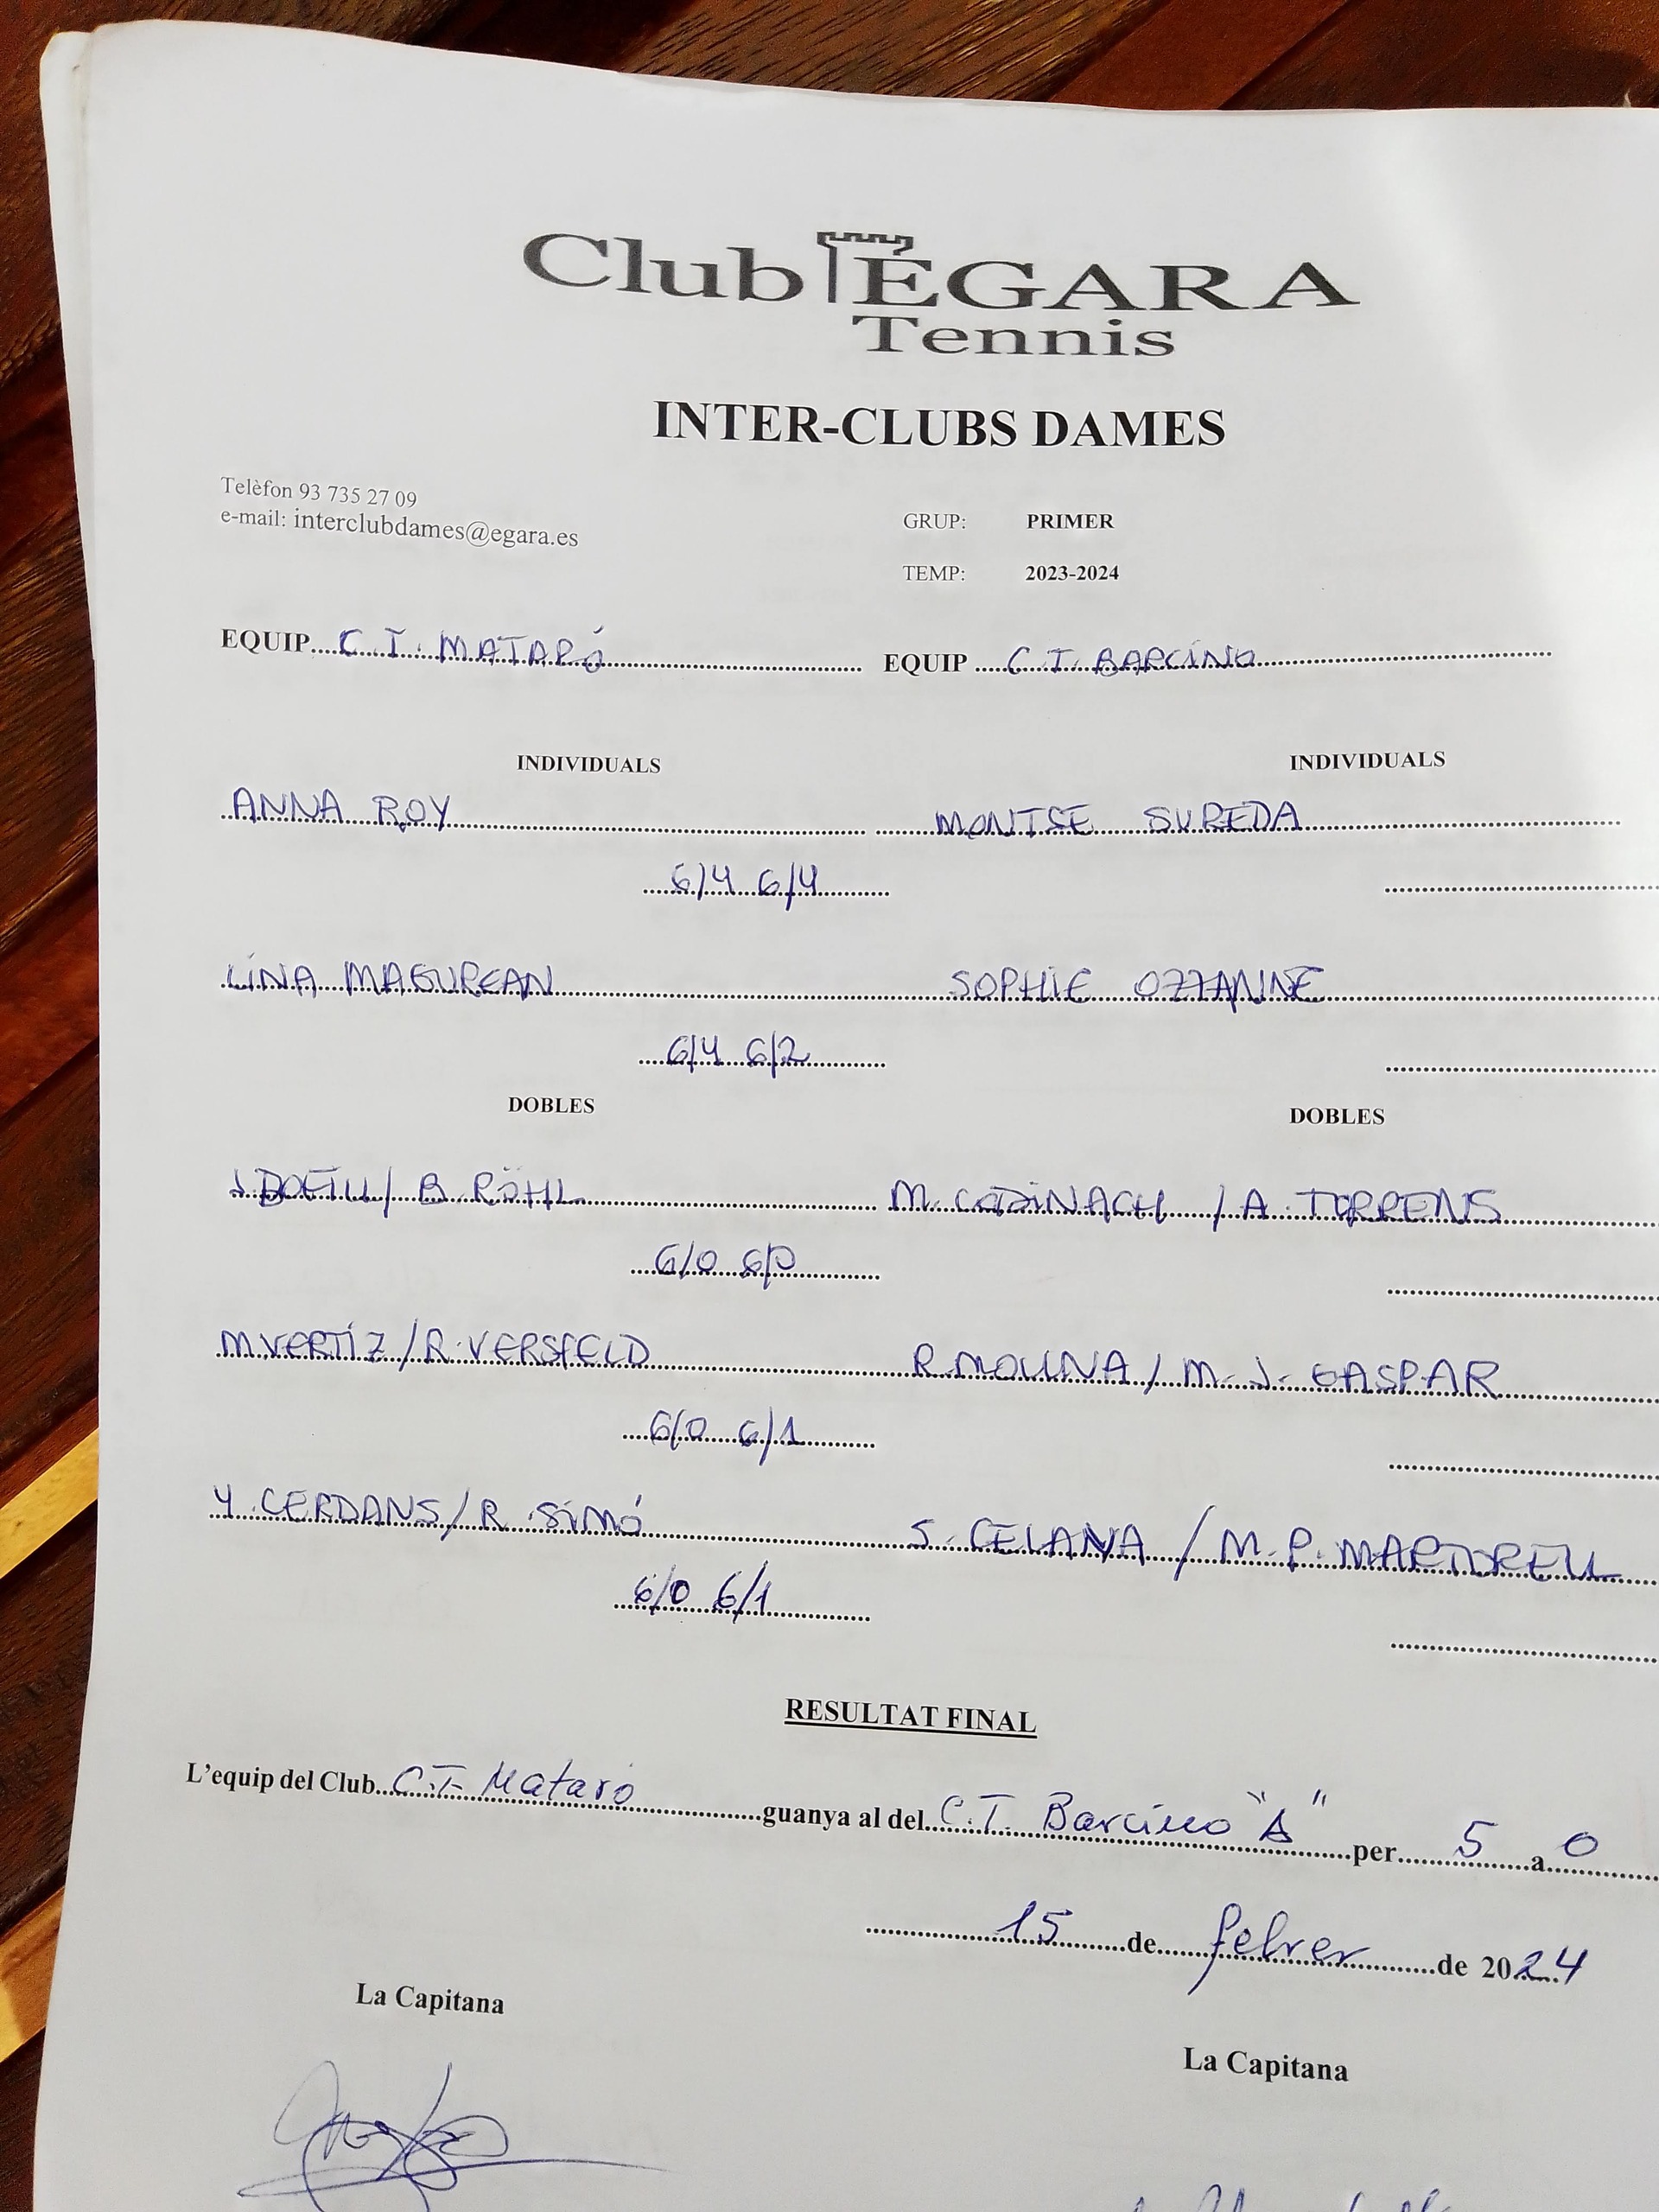 Club EGARA
Tennis
INTER-CLUBS DAMES
Telèfon 93 735 27 09
e-mail: interclubdames@egara.es
GRUP: PRIMER
TEMP: 2023-2024
EQUIP C.T. MATARÓ EQUIP C.T. BARCINO
INDIVIDUALS INDIVIDUALS
ANNA ROY MONTSE SUREDA
6/4 6/4
LINA MAGUREAN SOPHIE OZZANINE
6/4 6/2
DOBLES DOBLES
B. RÖHL M. CODINACH / A. TORRENS
6/0 6/0
M.VERTIZ / R.VERSFELD R.MOLINA / M. J. GASPAR
6/0 6/1
Y. CERDANS / R. SIMÓ S. CELANA / M. P. MARTORELL
6/0 6/1
RESULTAT FINAL
L'equip del Club C.T. Mataró guanya al del C.T. Barcino "A" per 5 a 0
15 de febrer de 2024
La Capitana
La Capitana